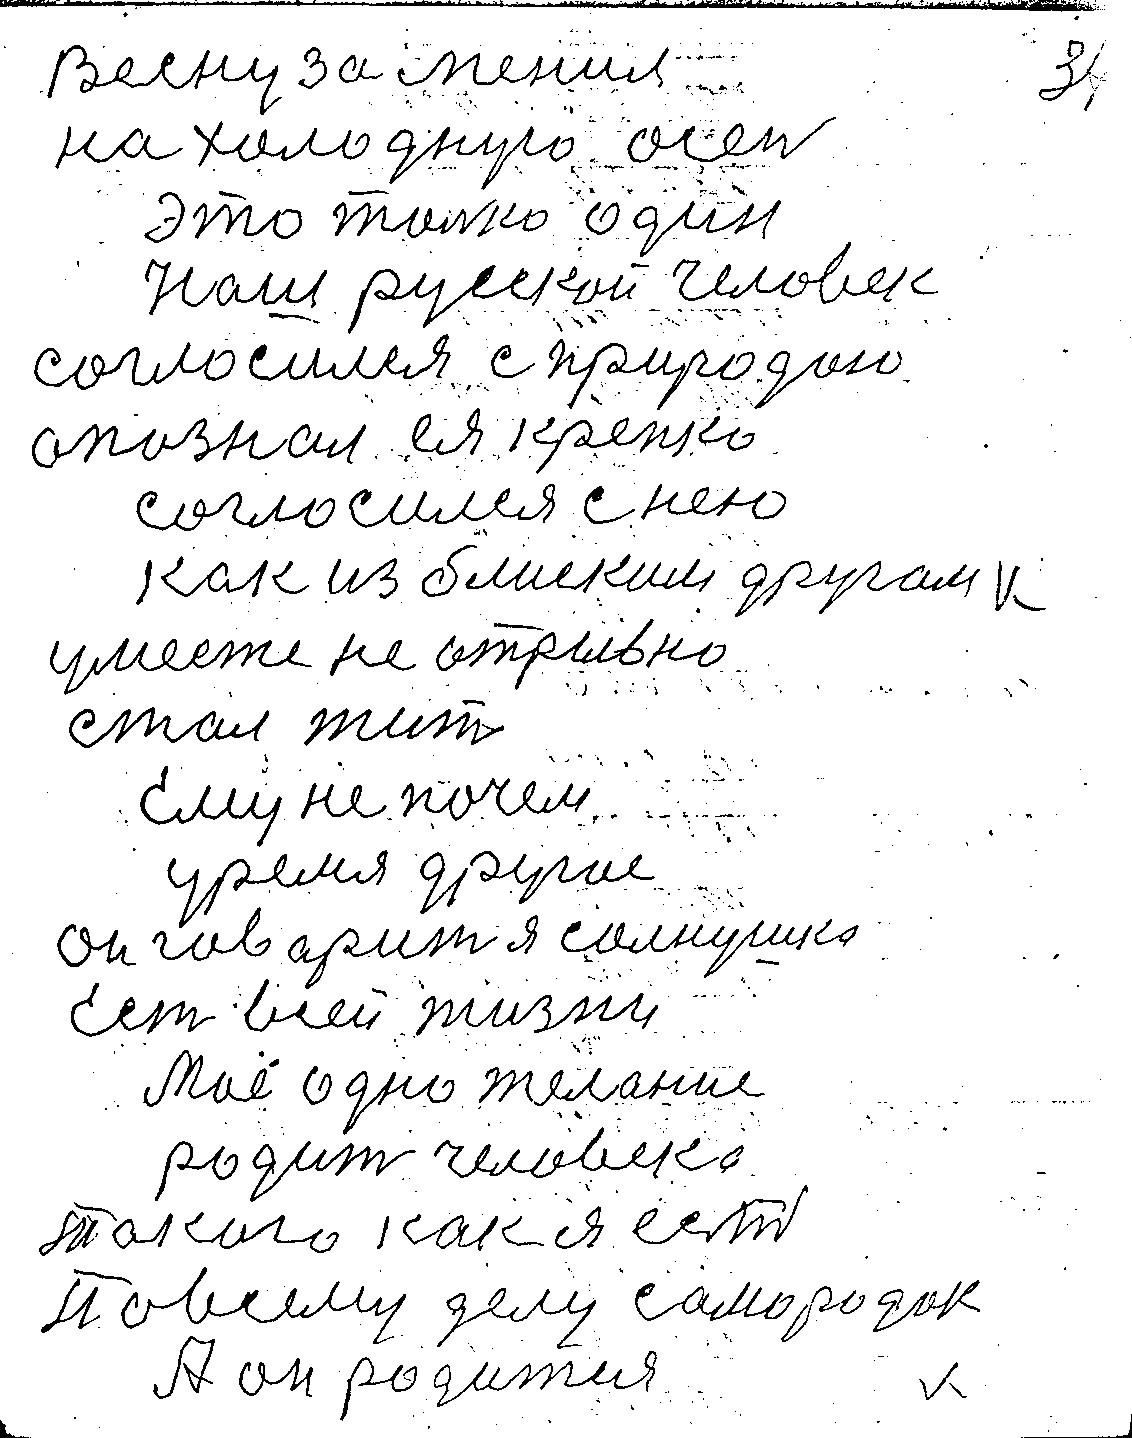 34
Весну заменил
на холодную осен
Это только один
Наш русской человек
соглосился с природою
опознал ея крепко
соглосился с нею
как из блиским другам
уместе не отрывно
стал жит
Ёму не почем
уремя другое
он говарит я солнушка
Ёст всей жизни
Моё одно желание
родит человека
такого как я есть
По всему делу самородок
А он родится